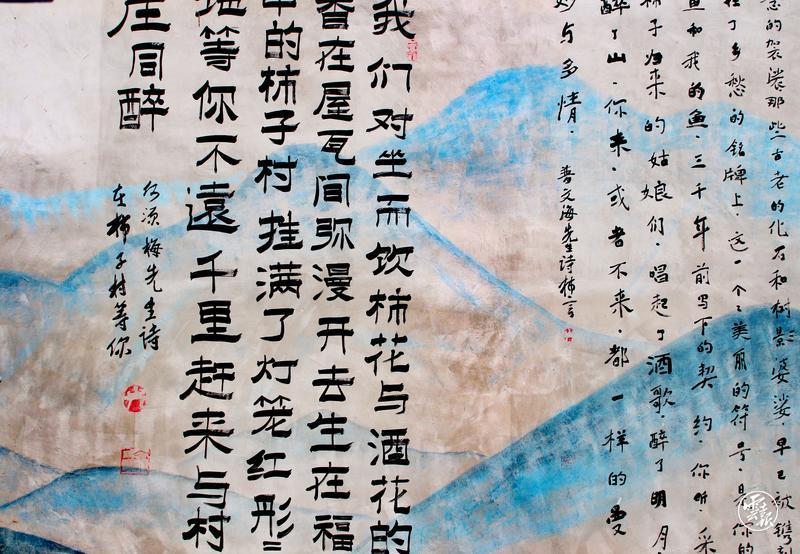 意的袈裟那些古老的化石和树影婆娑·早已被镌刻
在了乡愁的铭牌上·这一个个美丽的符号·是你的
鱼和我的鱼·三千年前写下的契约·你听·采
柿子归来的姑娘们·唱起了酒歌·醉了明月
醉了山·你来·或者不来·都一样的曼
妙与多情·
普文海先生诗柿
我们对坐而饮柿花与酒花的
香在屋瓦间弥漫开去生在福
中的柿子村挂满了灯笼红彤彤
地等你不遠千里赶来与村
庄同醉
凉梅先生诗
在柿子村等你